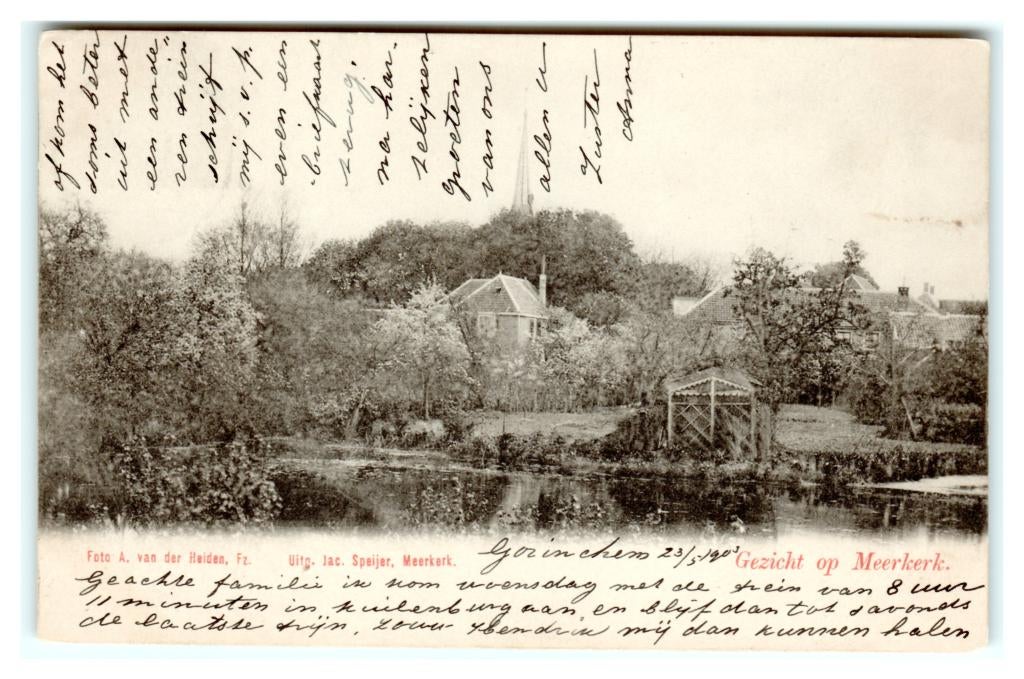 Foto A. van der Heiden, Fz. Uitg. Jac. Speijer, Meerkerk.
Gezicht op Meerkerk.
Gorinchem 23/5 1903
Geachte familie ik kom woensdag met de trein van 8 uur
11 minuten in kuilenburg aan, en blijf dan tot savonds
de laatste trijn, zouw Hendrik mij dan kunnen halen
of kom het
soms beter
uit met
een ande"
ren trein
schrijft
mij s.v.p.
even een
briefkaart
terug.
na har-
telijken
groeten
van ons
allen u
Zuster
Anna